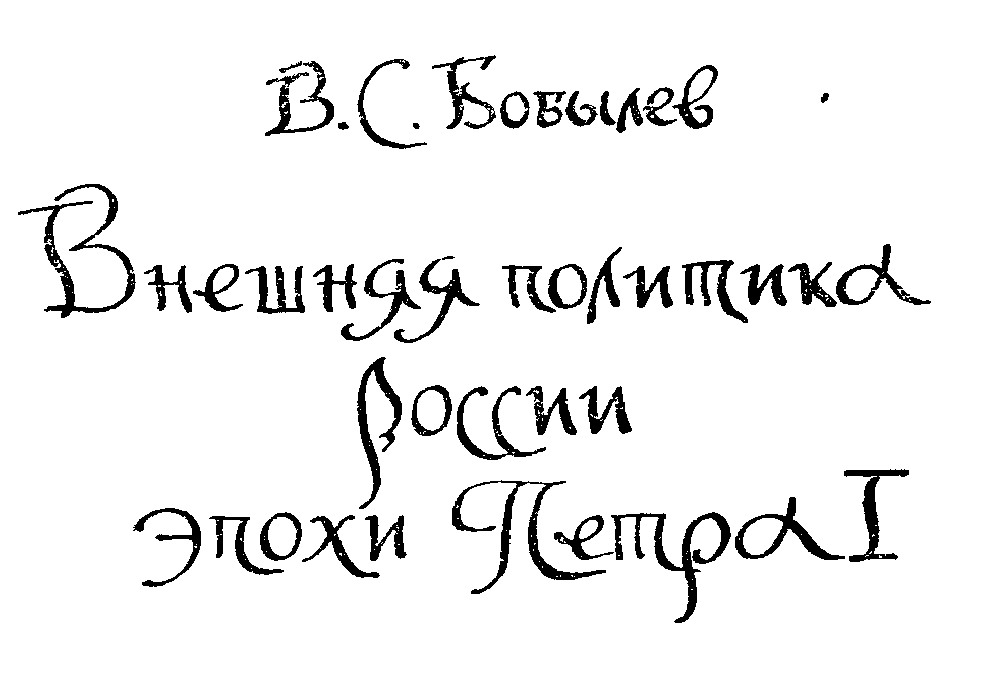 В.С. Бобылев
Внешняя политика
России
эпохи Петра I